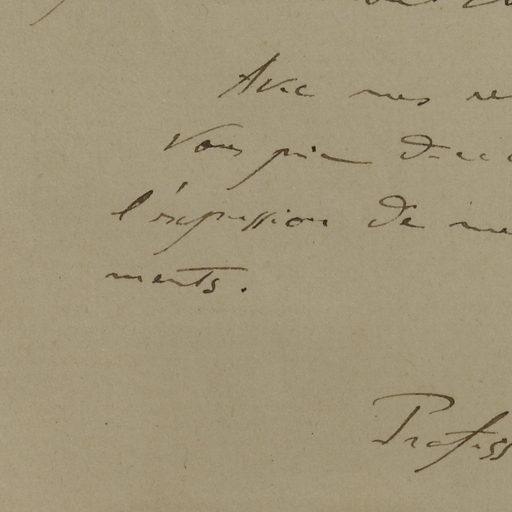 Avec mes re
vous prie d'acc
l'expression de me
ments.
Profess